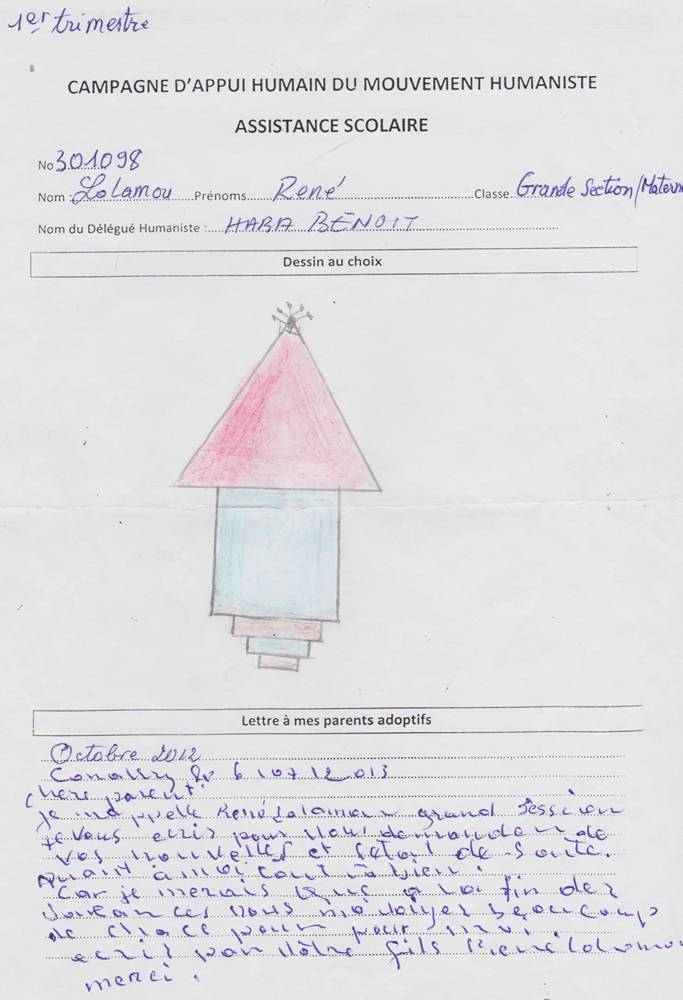 1er trimestre
CAMPAGNE D'APPUI HUMAIN DU MOUVEMENT HUMANISTE
ASSISTANCE SCOLAIRE
No 301098
Nom : Lolamou Prénoms René Classe Grande Section/Matern
Nom du Délégué Humaniste : HABA BENOIT
Dessin au choix
Lettre à mes parents adoptifs
Octobre 2012
Conakry 6 107 12 013
chere parent
je map pelle René Lolamou grand Session
je vous ecris pour vous demander de
vos nouvelles et de sante.
quant à moi tout va bien.
Car je a la fin des
vous beaucoup
de chace pour
ecrit par vôtre fils René lolamou
merci.